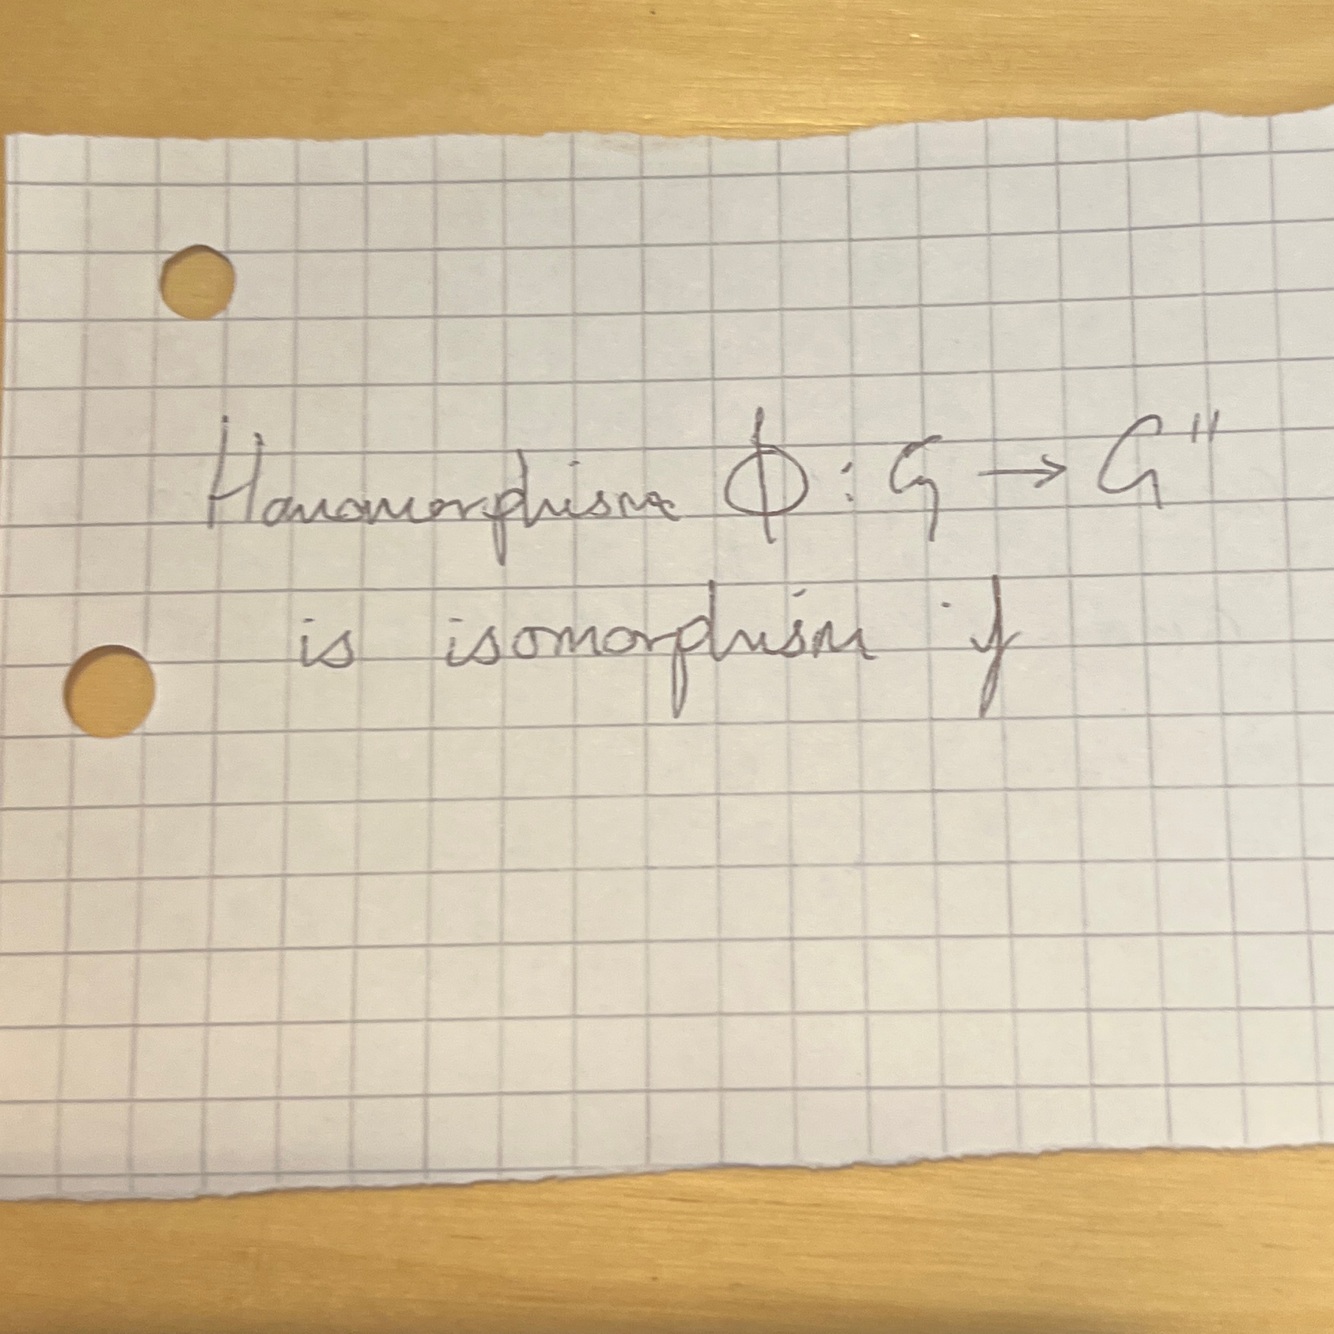 Homomorphism ϕ : G → G"
is isomorphism if